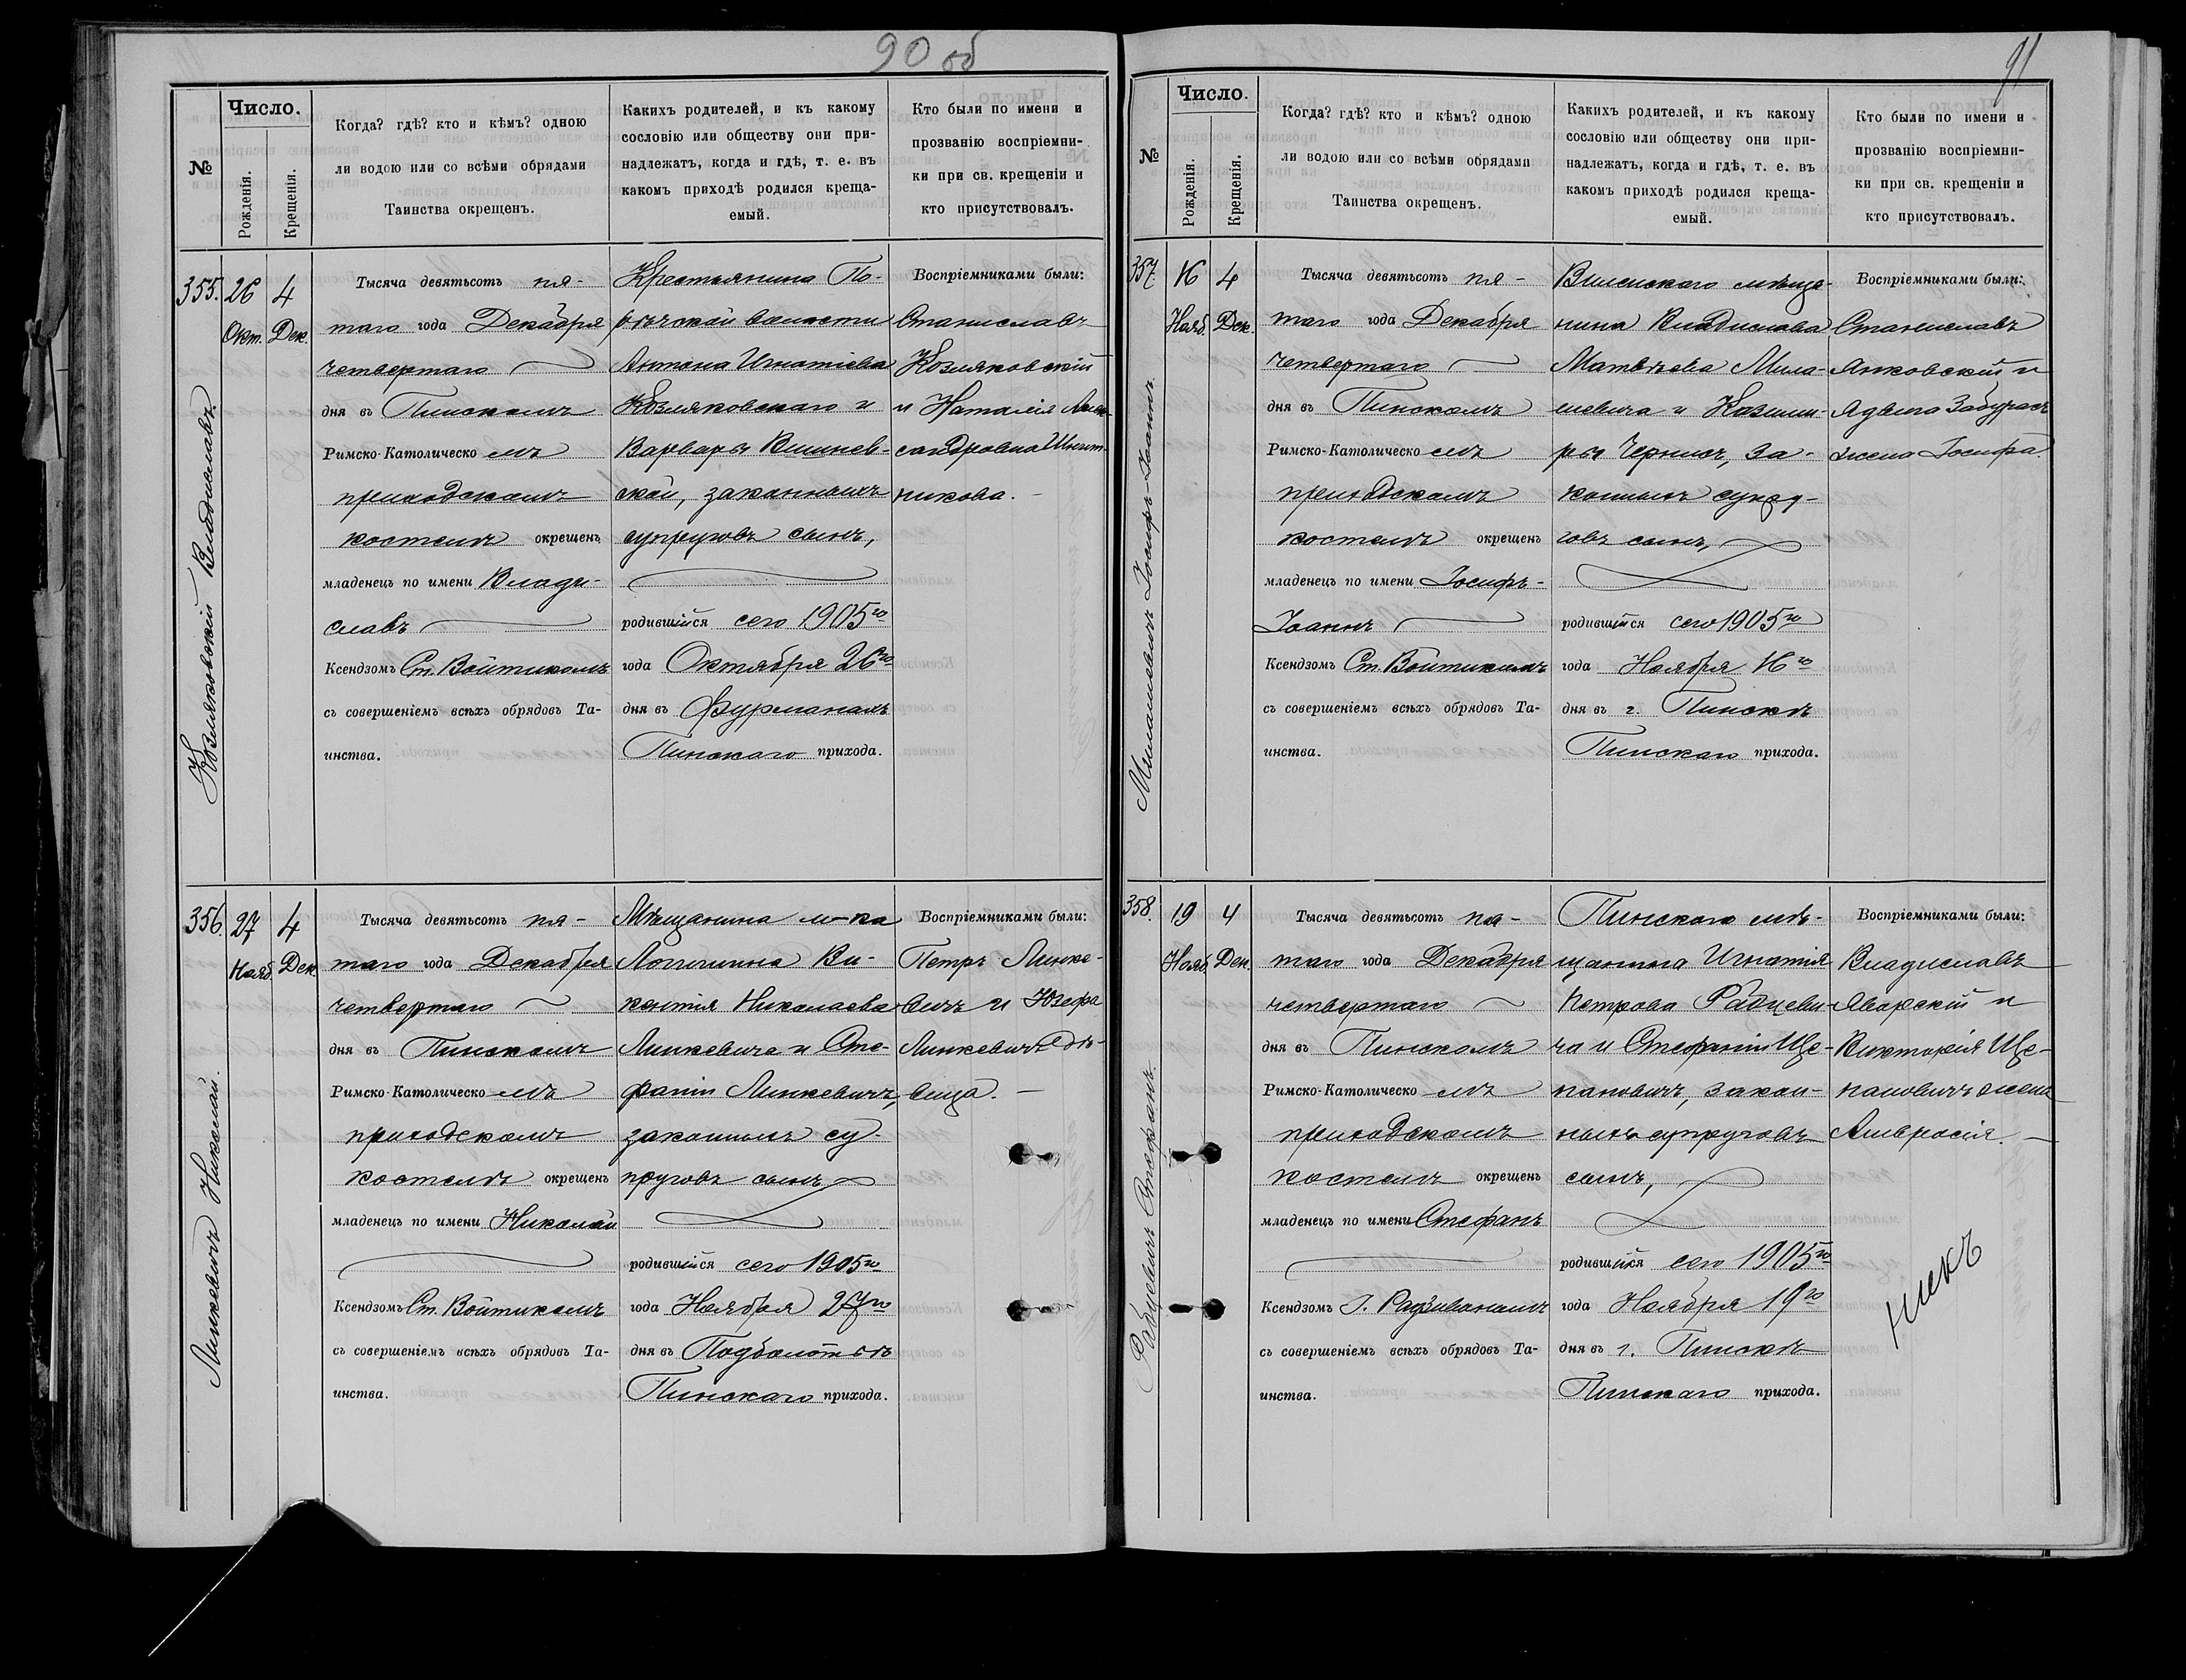 90 об
№
Число.
Рожденія.
Крещенія.
Когда? гдѣ? кто и кѣмъ? одною
ли водою или со всѣми обрядами
Таинства окрещенъ.
Какихъ родителей, и къ какому
сословію или обществу они при-
надлежатъ, когда и гдѣ, т. е. въ
какомъ приходѣ родился креща-
емый.
Кто были по имени и
прозванію воспріемни-
ки при св. крещеніи и
кто присутствовалъ.
355.
26
Окт.
4
Дек.
Козляковскій Владиславъ.
Тысяча девятьсотъ пя-
таго года Декабря
четвертаго
дня въ Пинскомъ
Римско-Католическомъ
приходскомъ
костелѣ окрещенъ
младенецъ по имени Влади-
славъ
Ксендзомъ Ст. Войтикомъ
съ совершеніемъ всѣхъ обрядовъ Та-
инства.
Крестьянина По-
рѣчской волости
Антона Игнатіева
Козляковскаго и
Варвары Вишнев-
ской, законныхъ
супруговъ сынъ,
родившійся сего 1905го
года Октября 26го
дня въ Фурманахъ
Пинскаго прихода.
Воспріемниками были:
Станиславъ
Козляковскій
и Наталія Алек-
сандровна
никова.
356.
27
Нояб.
4
Дек.
Линкевичъ Николай.
Тысяча девятьсотъ пя-
таго года Декабря
четвертаго
дня въ Пинскомъ
Римско-Католическомъ
приходскомъ
костелѣ окрещенъ
младенецъ по имени Николай
Ксендзомъ Ст. Войтикомъ
съ совершеніемъ всѣхъ обрядовъ Та-
инства.
Мѣщанина м-ка
Логишина Ви-
кентія Николаева
Линкевича и Сте-
фаніи Линкевичъ,
законныхъ су-
пруговъ сынъ,
родившійся сего 1905го
года Ноября 27го
дня въ Подболотьѣ
Пинскаго прихода.
Воспріемниками были:
Петръ Линке-
вичъ и Юзефа
Линкевичъ дѣ-
вица.
91
№
Число.
Рожденія.
Крещенія.
Когда? гдѣ? кто и кѣмъ? одною
ли водою или со всѣми обрядами
Таинства окрещенъ.
Какихъ родителей, и къ какому
сословію или обществу они при-
надлежатъ, когда и гдѣ, т. е. въ
какомъ приходѣ родился креща-
емый.
Кто были по имени и
прозванію воспріемни-
ки при св. крещеніи и
кто присутствовалъ.
357.
16
Нояб.
4
Дек.
Милашевичъ Іосифъ-Іоаннъ.
Тысяча девятьсотъ пя-
таго года Декабря
четвертаго
дня въ Пинскомъ
Римско-Католическомъ
приходскомъ
костелѣ окрещенъ
младенецъ по имени Іосифъ-
Іоаннъ
Ксендзомъ Ст. Войтикомъ
съ совершеніемъ всѣхъ обрядовъ Та-
инства.
Виленскаго мѣща-
нина Владислава
Матвѣева Мила-
шевича и Казими-
ры Чернисъ, за-
конныхъ супру-
говъ сынъ,
родившійся сего 1905го
года Ноября 16го
дня въ г. Пинскѣ
Пинскаго прихода.
Воспріемниками были:
Станиславъ
Янковскій и
Ядвига
жена Іосифа.
358.
19
Нояб.
4
Дек.
Рабцевичъ Стефанъ.
Тысяча девятьсотъ пя-
таго года Декабря
четвертаго
дня въ Пинскомъ
Римско-Католическомъ
приходскомъ
костелѣ окрещенъ
младенецъ по имени Стефанъ
Ксендзомъ І. Радзивономъ
съ совершеніемъ всѣхъ обрядовъ Та-
инства.
Пинскаго мѣ-
щанина Игнатія
Петрова Рабцеви-
ча и Стефаніи Ще-
пановичъ, закон-
ныхъ супруговъ
сынъ,
родившійся сего 1905го
года Ноября 19го
дня въ г. Пинскѣ
Пинскаго прихода.
Воспріемниками были:
Владиславъ
Яворскій и
Викторія Ще-
пановичъ жена
Амвросія.